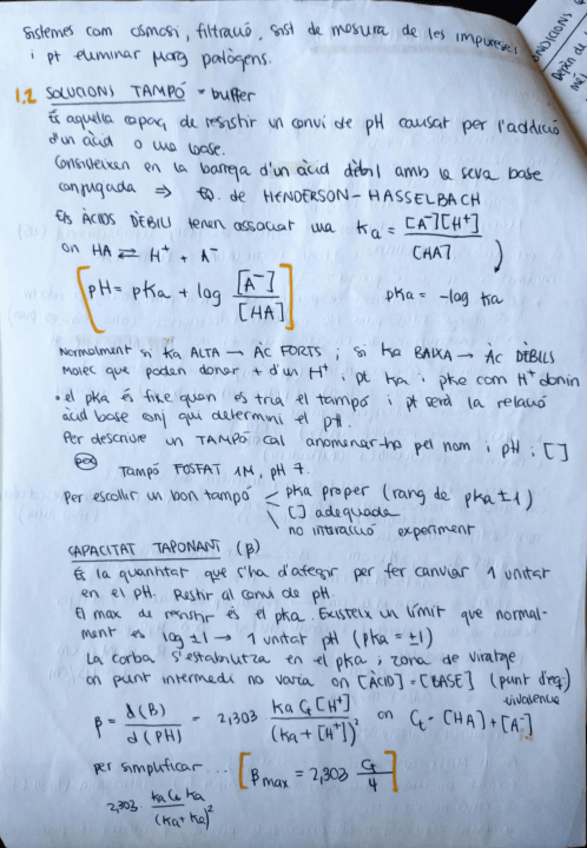 Sistemes com osmosi, filtració, sist de mesura de les impureses
i pt eliminar març patògens.
1.2 SOLUCIONS TAMPÓ - buffer
És aquella capaç de resistir un canvi de pH causat per l'addició
d'un àcid o una base.
Consisteixen en la barreja d'un àcid dèbil amb la seva base
conjugada ⇒ EQ. de HENDERSON-HASSELBACH
Els ÀCIDS DÈBILS tenen associat una Ka = [A⁻][H⁺] / [HA]
on HA ⇌ H⁺ + A⁻
[pH = pKa + log [A⁻] / [HA]] pKa = -log Ka
Normalment si Ka ALTA → ÀC FORTS ; si Ka BAIXA → ÀC DÈBILS
Molèc que poden donar + d'un H⁺ ; pt Ka i pKa com H⁺ donin
• el pKa és fixe quan es tria el tampó i pt serà la relació
àcid base conj qui determini el pH.
Per descriure un TAMPÓ cal anomenar-ho pel nom i pH i []
pex
Tampó FOSFAT 1M, pH 7.
Per escollir un bon tampó < pKa proper (rang de pKa ± 1)
[] adequada
no interacció experiment
CAPACITAT TAPONANT (β)
És la quantitat que s'ha d'afegir per fer canviar 1 unitat
en el pH. Resistir al canvi de pH.
El max de resistir és el pKa. Existeix un límit que normal-
ment és log ±1 → 1 unitat pH (pKa = ±1)
La corba s'estabilitza en el pKa i zona de viratge
on punt intermedi no varia on [ÀCID] = [BASE] (punt d'eq)
uivalència
β = d(B) / d(PH) = 2,303 · Ka Ct [H⁺] / (Ka + [H⁺])² on Ct = [HA] + [A⁻]
per simplificar... [βmax = 2,303 Ct / 4]
2,303 · Ka Ct Ka / (Ka + Ka)²